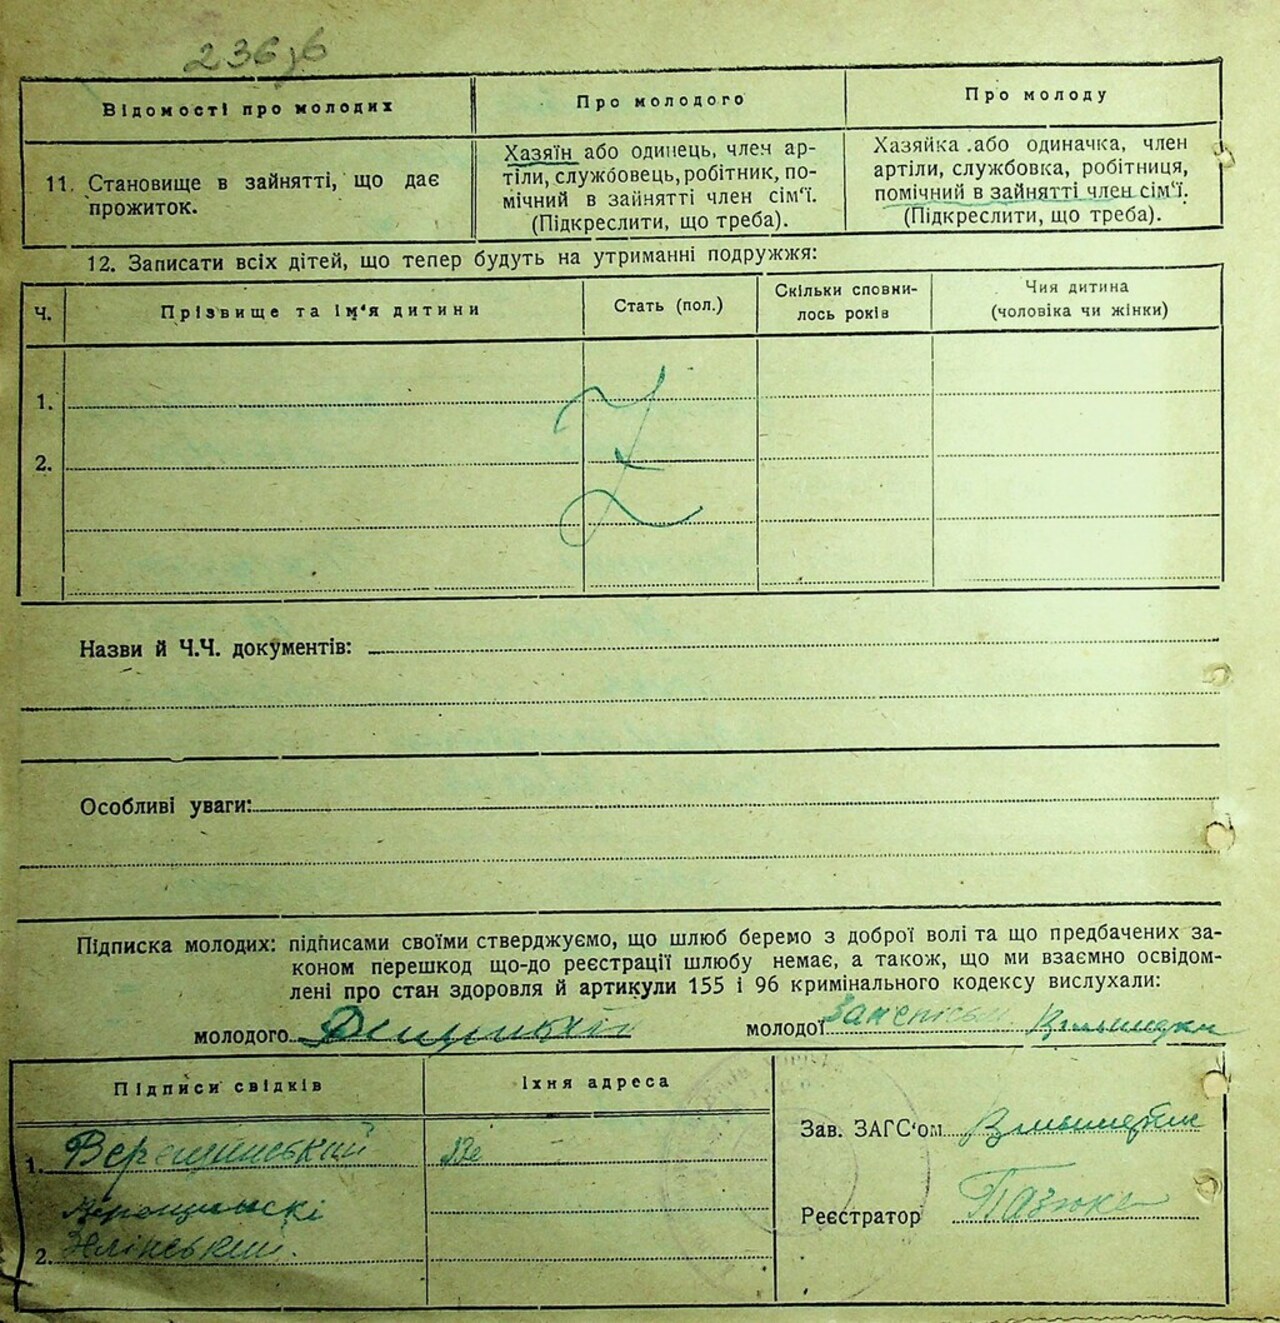 236
Відомості про молодих
Про молодого
Про молоду
11. Становище в зайнятті, що дає
прожиток.
Хазяїн або одинець, член ар-
тіли, службовець, робітник, по-
мічний в зайнятті член сім'ї.
(Підкреслити, що треба).
Хазяйка .або одиначка, член
артіли, службовка, робітниця,
помічний в зайнятті член сім'ї.
(Підкреслити, що треба).
12. Записати всіх дітей, що тепер будуть на утриманні подружжя:
Ч.
Прізвище та ім'я дитини
Стать (пол.)
Скільки сповни-
лось років
Чия дитина
(чоловіка чи жінки)
1.
2.
Назви й Ч.Ч. документів:
Особливі уваги:
Підписка молодих: підписами своїми стверджуємо, що шлюб беремо з доброї волі та що предбачених за-
коном перешкод що-до реєстрації шлюбу немає, а також, що ми взаємно освідом-
лені про стан здоровля й артикули 155 і 96 кримінального кодексу вислухали:
молодого
молодої
Підписи свідків
Їхня адреса
1. Верещинський
2.
Зав. ЗАГС'ом
Реєстратор